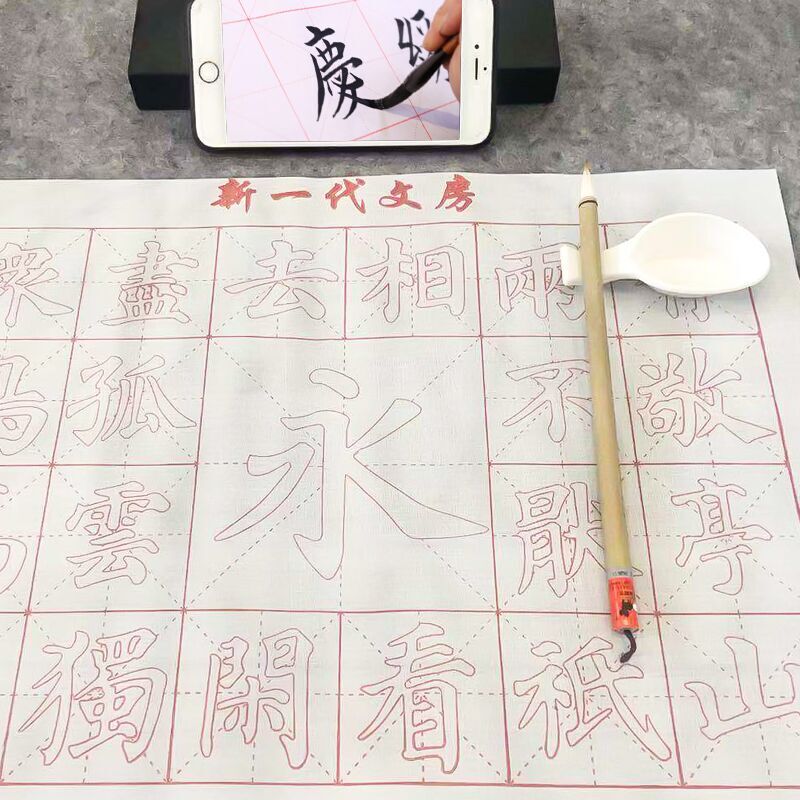 慶
新一代文房
盡去相兩有
鳥孤永不敬
雲亭
獨閑看祇山